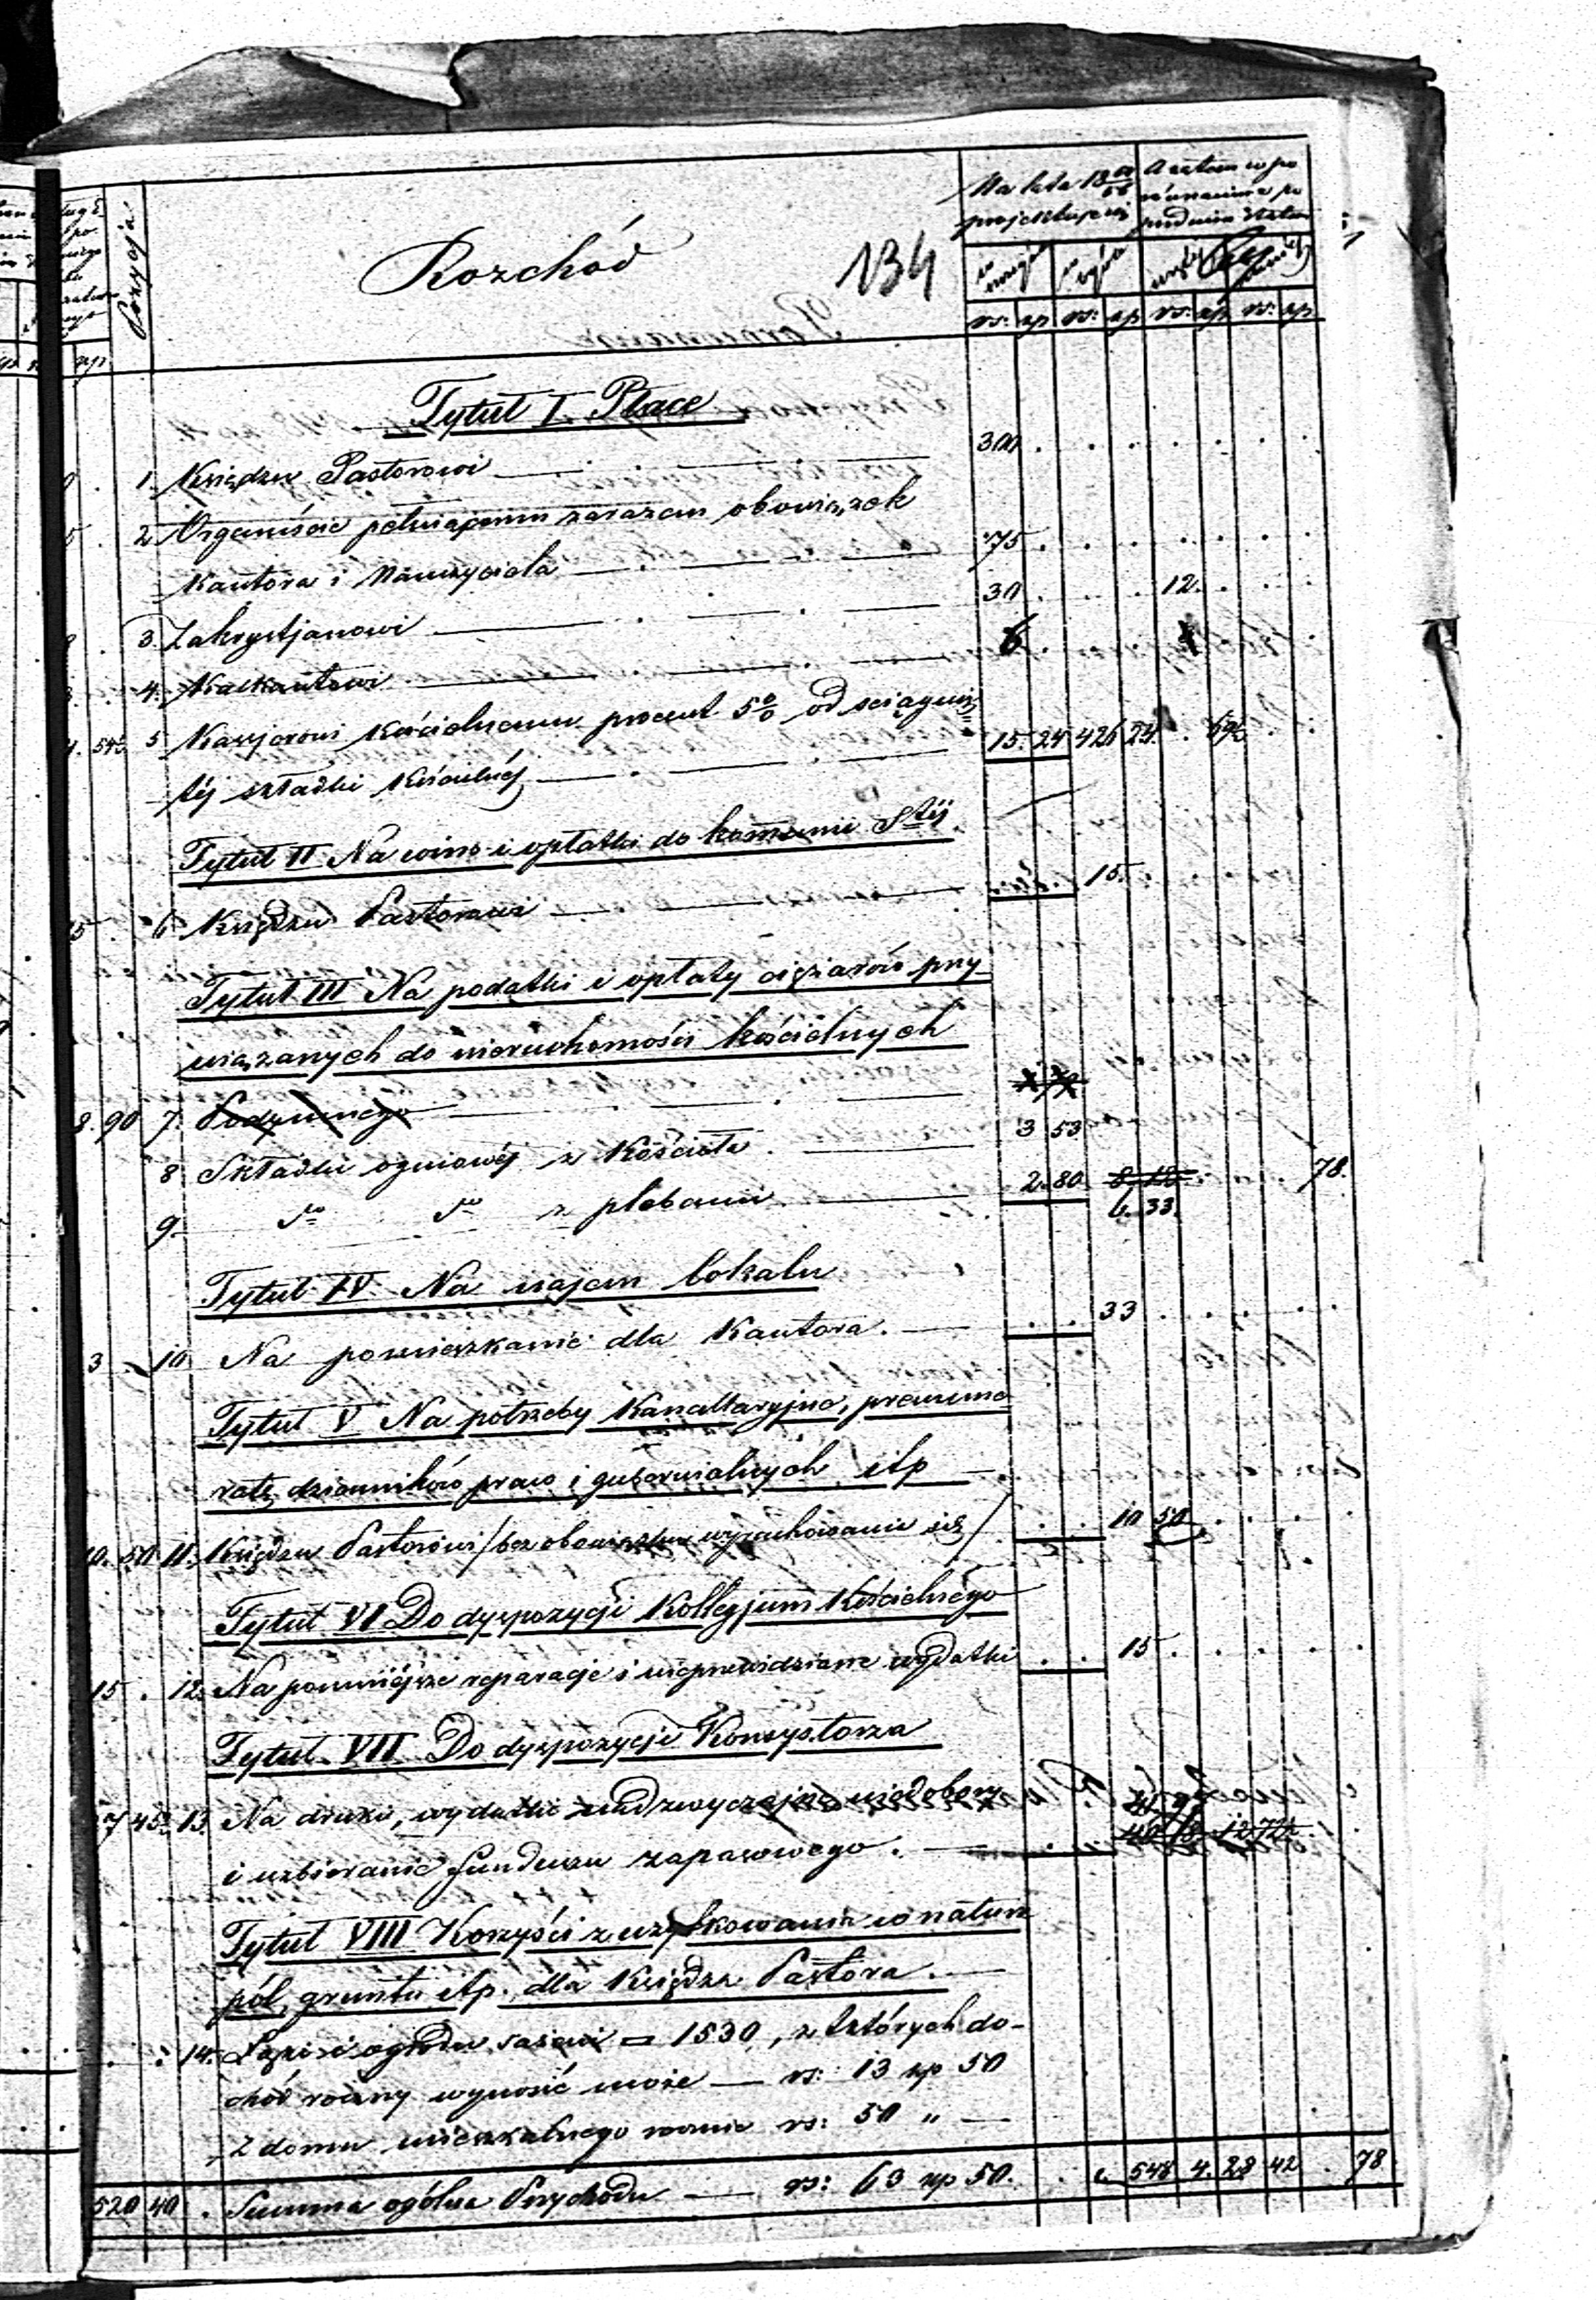 Pozycja
Rozchód
134
Na lata 18
projektuje się
A zatem w po
równaniu z po
przednim etatem
rs: kp rs: kp rs: kp rs: kp
Tytuł I. Płace
1. Księdzu Pastorowi 300
2 Organiście pełniącemu zarazem obowiązek
Kantora i Nauczyciela 75
3. Zakrystjanowi 30 12
4. Kalkantowi 6
5 Kassjerowi Kościelnemu procent 5% od ściągnię
téj składki Kościelnéj 15. 24 426 24
Tytuł II Na wino i opłatki do komunii Stéj
15 6 Księdzu Pastorowi 15.
Tytuł III Na podatki i opłaty ciężarów przy
wiązanych do nieruchomości kościelnych
8. 90 7. Podymnego
8 Składki ogniowéj z Kościoła 3 53
9. do do z plebanii 2. 80 6. 33. 78.
Tytuł IV Na najem lokalu
3 10 Na pomieszkanie dla Kantora. 33
Tytuł V Na potrzeby Kancellaryjne, prenume
ratę dzienników praw i gubernialnych itp
10. 50 11. Księdzu Pastorowi /bez obowiązku wyrachowania się/ 10 50
Tytuł VI Do dyspozycji Kollegjum Kościelnego
15 . 12. Na pomniejsze reparacje i nieprzewidziane wydatki 15
Tytuł VII Do dyspozycji Konsystorza
13. Na druki, wydatki nadzwyczajne niedobory
i uzbieranie funduszu zapasowego.
Tytuł VIII Korzyści z użytkowania w naturze
pól, gruntu itp. dla Księdza Pastora.
14. Łąki i ogrodu sążni = 1530, z których do-
chód roczny wynosić może — rs: 13 kp 50
Z domu mieszkalnego rocznie rs: 50 " —
520 40 . Summa ogólna Przychodu — rs: 63 kp 50. 548 4. 28 42 . 78